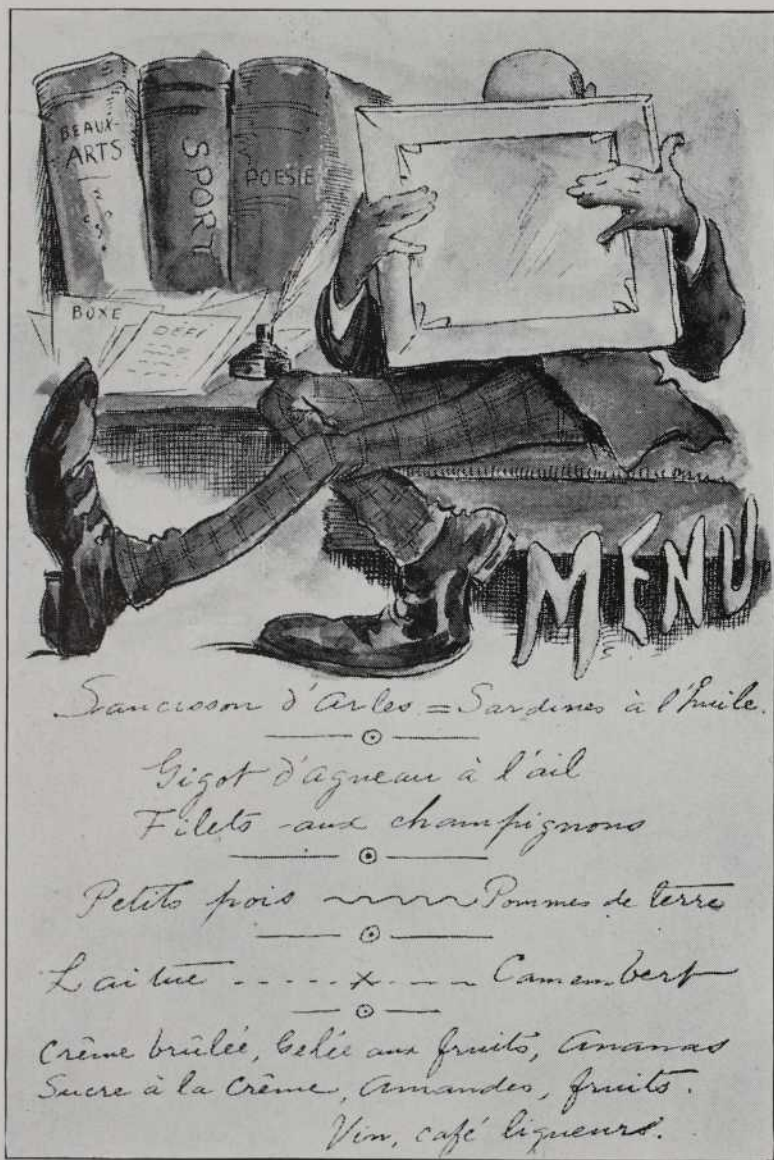 BEAUX-
ARTS
SPORT
POESIE
BOXE
DÉFI
MENU
Saucisson d'Arles = Sardines à l'huile.
Gigot d'agneau à l'ail
Filets aux champignons
Petits pois Pommes de terre
Laitue - - - - - x - - - Camembert
Crême brûlée, Gelée aux fruits, Ananas
Sucre à la Crême, Amandes, fruits.
Vin, café liqueurs.